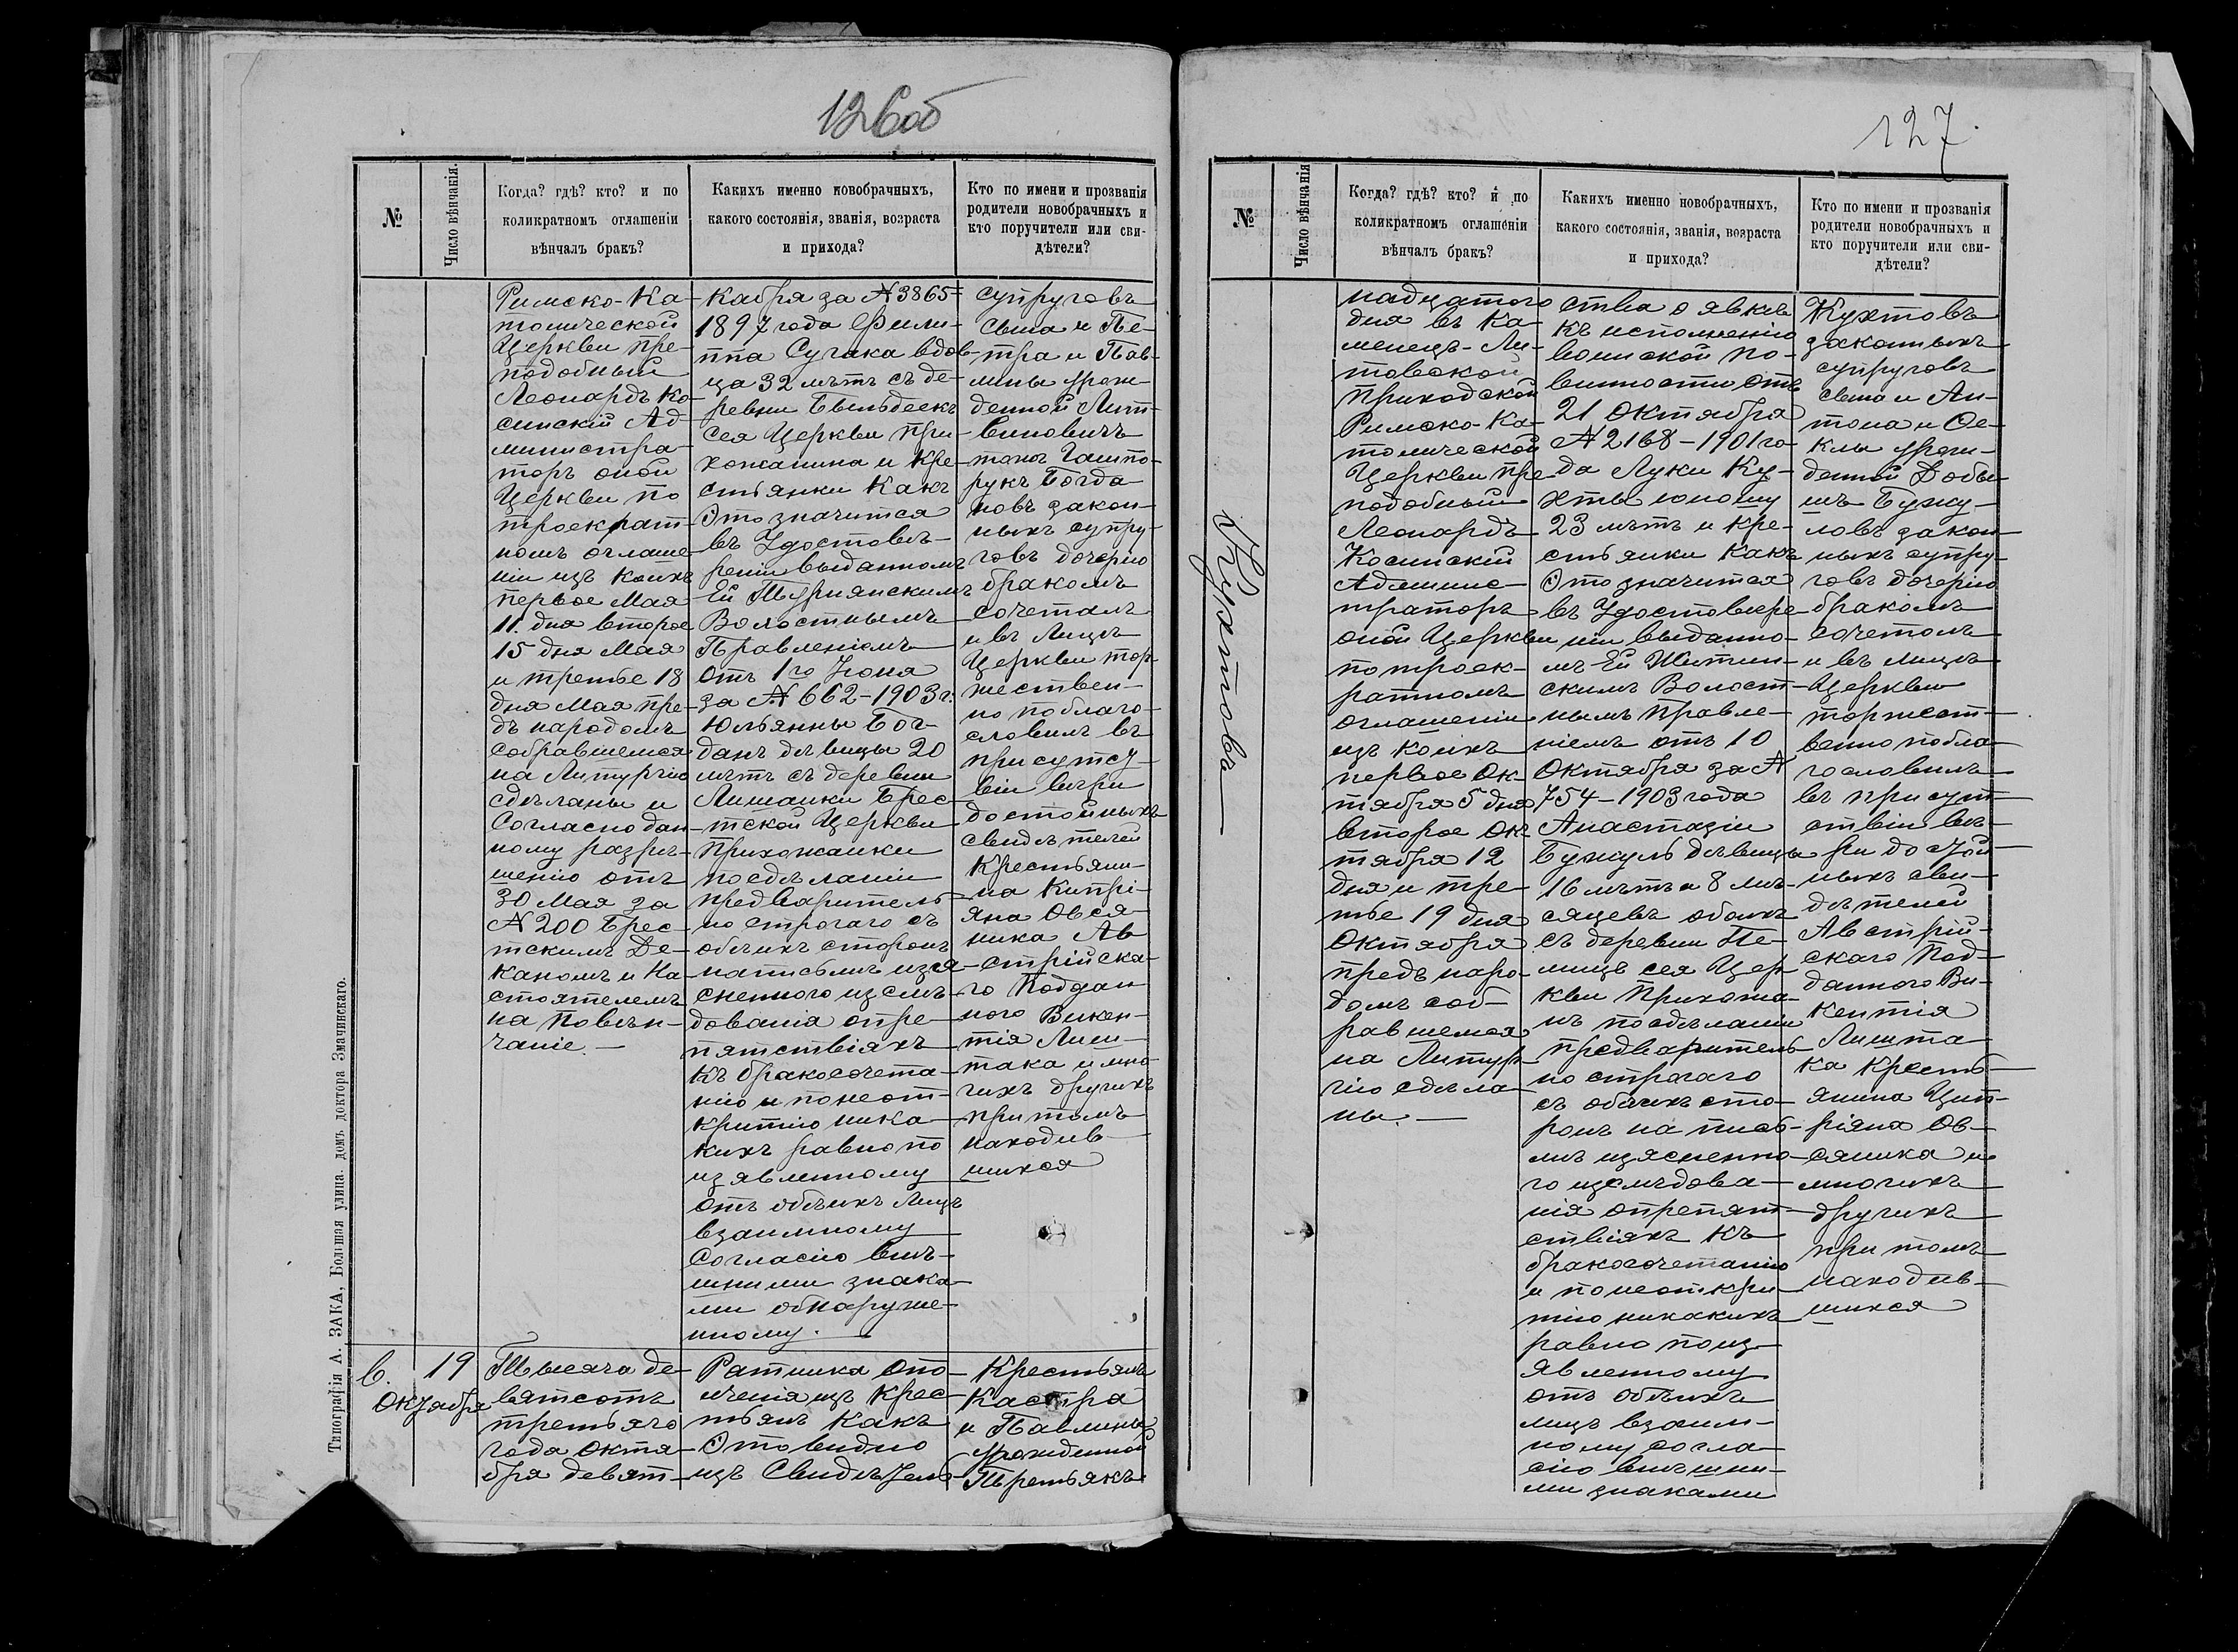 126об
№
Число вѣнчанія.
Когда? гдѣ? кто? и по
коликратномъ оглашеніи
вѣнчалъ бракъ?
Какихъ именно новобрачныхъ,
какого состоянія, званія, возраста
и прихода?
Кто по имени и прозванія
родители новобрачныхъ и
кто поручители или сви-
дѣтели?
Римско-Ка-
толической
Церкви пре-
подобный
Леонардъ Ко-
синскій Ад-
министра-
торъ оной
Церкви по
троекрат-
номъ оглаше-
ніи изъ коихъ
первое Мая
11. дня второе
15 дня Мая
и третье 18
дня Мая пре-
дъ народомъ
собравшемся
на Литургію
сдѣланы и
Согласно дан-
ному разрѣ-
шенію отъ
30 Мая за
№ 200 Брес-
тскимъ Де-
каномъ и На-
стоятелемъ
на повѣн-
чаніе. —
кабря за № 3865 =
1897 года Фили-
ппа Сучака вдов-
ца 32 лѣтъ съ де-
ревни
сея Церкви при-
хожанина и кре-
стьянки какъ
Это значится
въ Удостовѣ-
реніи выданномъ
Ей Турнянскимъ
Волостнымъ
Правленіемъ
отъ 1го Іюня
за № 662-1903 г.
Юльянны Бог-
данъ дѣвицы 20
лѣтъ съ деревни
Лишанки Брес-
тской Церкви
прихожанки
посдѣланіи
предваритель-
но строгаго съ
обѣихъ сторонъ
написьмѣ изъя-
сненного изслѣ-
дованія опре-
пятствіяхъ
къ бракосочета-
нію и понеот-
критію ника-
кихъ равно по
изявленному
отъ обѣихъ Лицъ
взаимному
Согласію внѣ-
шними знака-
ми обнаруже-
нному. —
супруговъ
сына и Пе-
тра и Пав-
лины урож-
денной Лит-
виновичъ
тожъ
рукъ Богда-
новъ закон-
ныхъ супру-
говъ дочерію
бракомъ
сочеталъ
и въ Лицѣ
Церкви тор-
жествен-
но поблаго-
словилъ въ
присутст-
віи вѣри
достойныхъ
свидѣтелей
Крестьяни-
на Кипрі-
яна Овся-
ника Ав-
стрійска-
го Поддан-
ного Викен-
тія Лиш-
така и мно-
гихъ другихъ
притомъ
находив-
шихся
6.
19
Октября
Тысяча де-
вятсотъ
третьяго
года октя-
бря девят-
Ратника опо-
лченія изъ крес-
тьянъ какъ
Это видно
изъ Свидѣтель-
Крестьянъ
Каспра
и Павлины
урожденной
Третьякъ
Типографія А. ЗАКА, Большая улица. домъ доктора Значинскаго.
127.
№
Число вѣнчанія
Когда? гдѣ? кто? и по
коликратномъ оглашеніи
вѣнчалъ бракъ?
Какихъ именно новобрачныхъ,
какого состоянія, званія, возраста
и прихода?
Кто по имени и прозванія
родители новобрачныхъ и
кто поручители или сви-
дѣтели?
Кухтовъ
надцатого
дня въ Ка-
менецъ-Ли-
товской
приходской
Римско-Ка-
толической
Церкви пре-
подобный
Леонардъ
Косинскій
Админис-
траторъ
оной Церкви
по троек-
ратномъ
оглашеніи
изъ коихъ
первое Ок-
тября 5 дня
второе Ок-
тября 12
дня и тре-
тье 19 дня
Октября
предъ наро-
домъ соб-
равшемся
на Литур-
гію сдѣла-
ны. —
ства о явкѣ
къ исполненію
воинской по-
винности отъ
21 Октября
№ 2168-1901 го-
да Луки Ку-
хты юношу
23 лѣтъ и кре-
стьянки какъ
Это значится
въ Удостовѣре-
ніи выданно-
мъ Ей Житин-
скимъ Волост-
нымъ правле-
ніемъ отъ 10
Октября за №
754-1903 года
Анастазіи
Бужулъ дѣвицы
16 лѣтъ и 8 мѣ-
сяцевъ обоихъ
съ деревни Пе-
лищъ сея Цер-
кви Прихожа-
нъ посдѣланіи
предваритель-
но строгаго
съ обѣихъ сто-
ронъ на пись-
мѣ изясненно-
го изслѣдова-
нія опрепят-
ствіяхъ къ
бракосочетанію
и понеоткри-
тію никакихъ
равно поиз-
явленному
отъ обѣихъ
лицъ взаим-
ному согла-
сію внѣшни-
ми знаками
Кухтовъ
законныхъ
супруговъ
сына и Ан-
тона и Фе-
клы урож-
денной Добы-
шъ Бужу-
ловъ закон-
ныхъ супру-
говъ дочерію
бракомъ
сочеталъ
и въ лицѣ
Церкви
торжест-
венно побла-
гословилъ
въ присут-
ствіи вѣ-
ри достой-
ныхъ сви-
дѣтелей
Австрій-
скаго Под-
данного Ви-
кентія
Лишта-
ка Кресть-
янина Цип-
ріяна Ов-
сяника и
многихъ
другихъ
при томъ
находив-
шихся